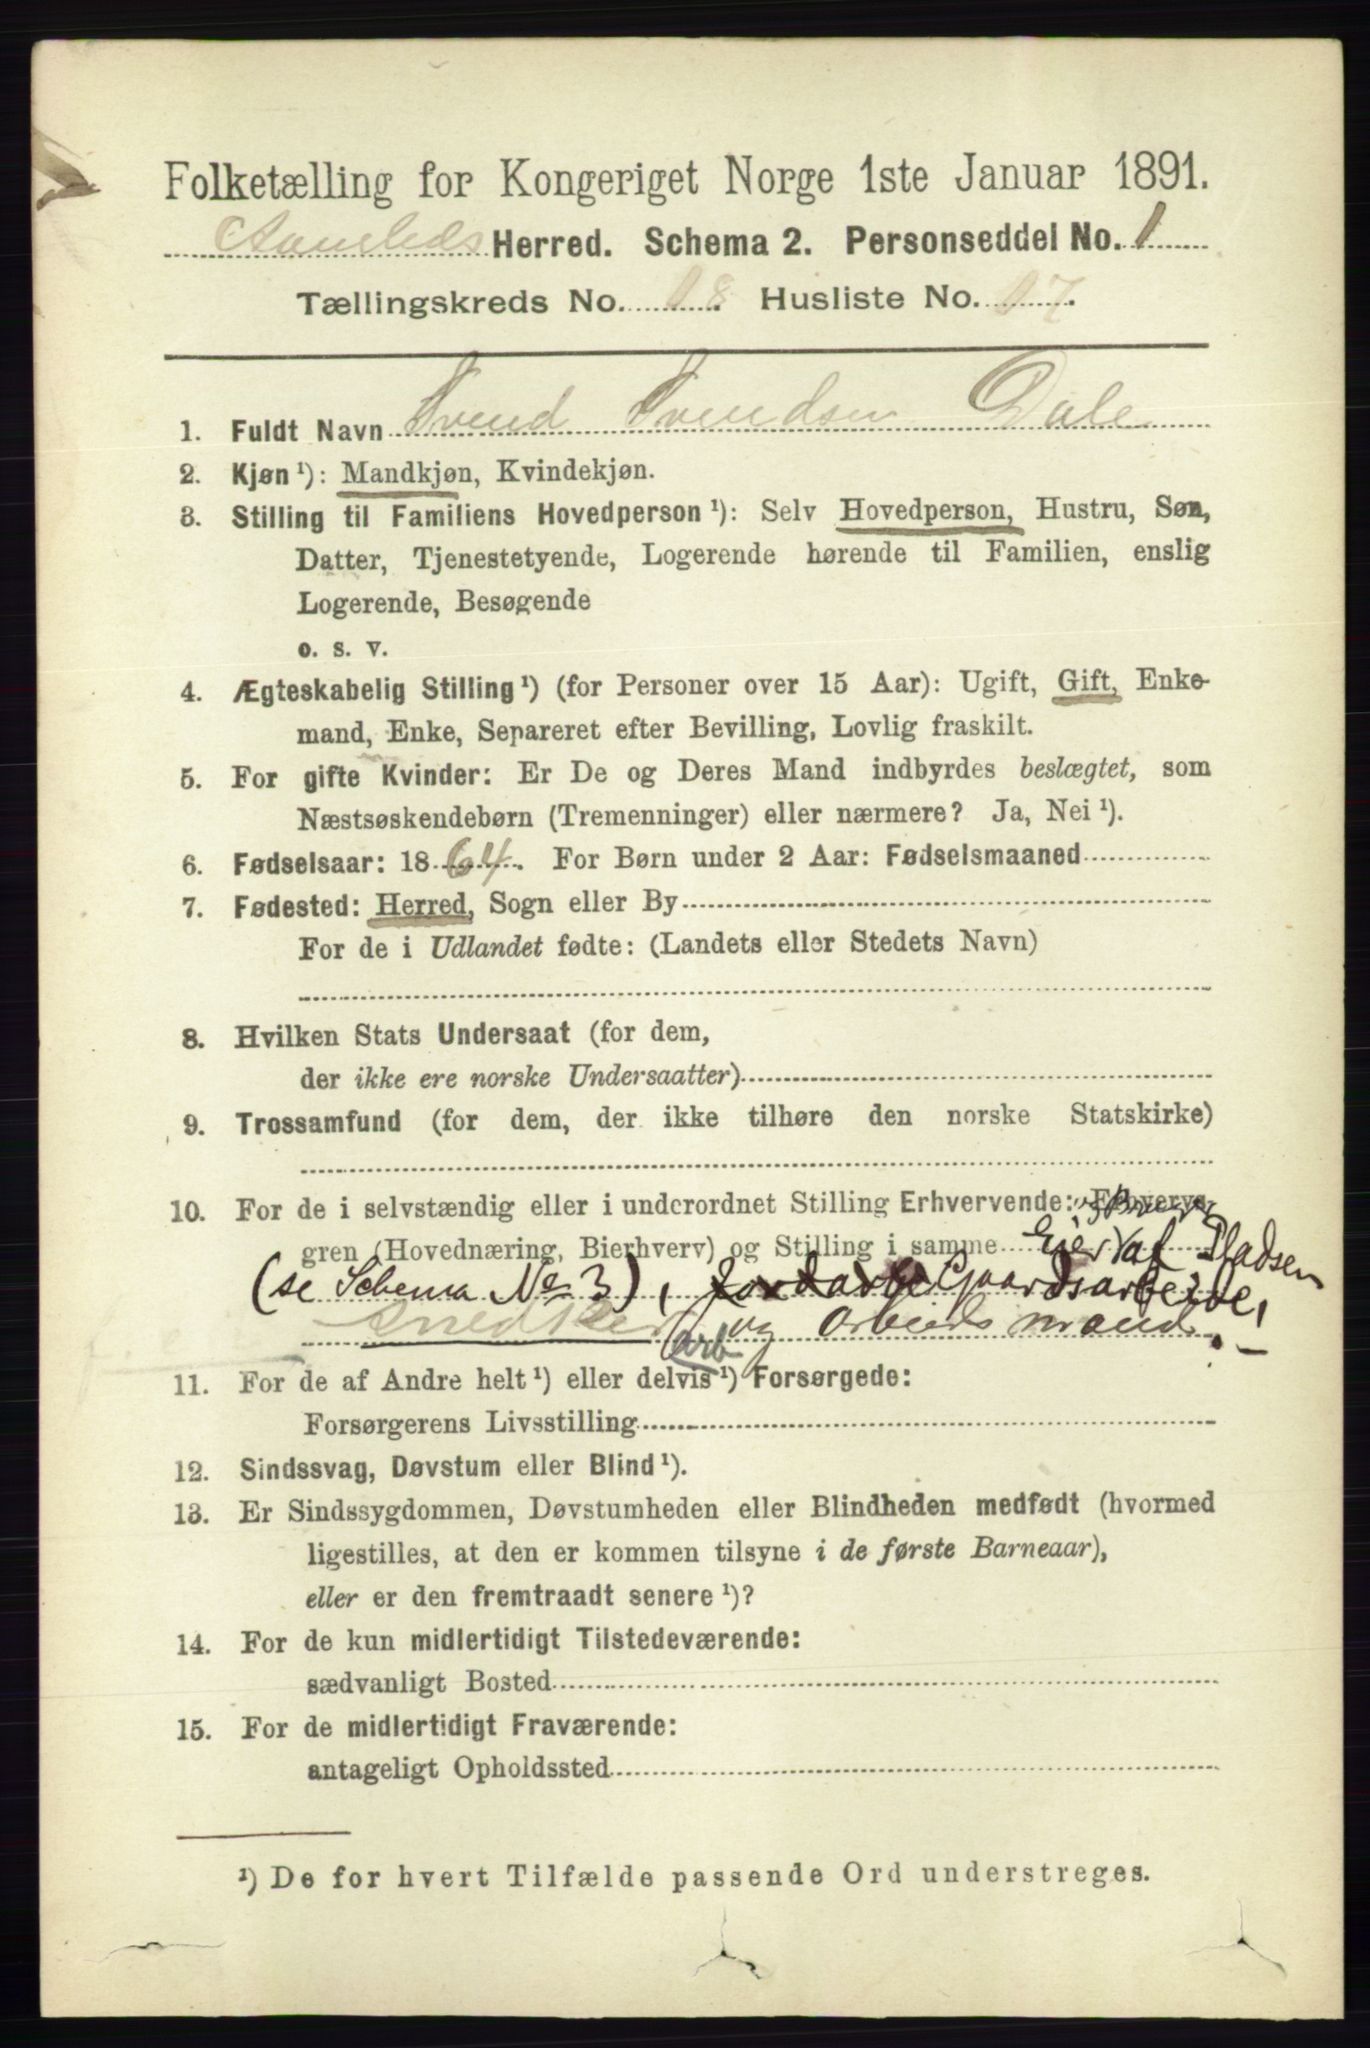 Folketælling for Kongeriget Norge 1ste Januar 1891.
Herred. Schema 2. Personseddel No. 1
Tællingskreds No. 18. Husliste No. 17.
1. Fuldt Navn Svend Svendsen Dale
2. Kjøn ¹): Mandkjøn, Kvindekjøn.
3. Stilling til Familiens Hovedperson ¹): Selv Hovedperson, Hustru, Søn,
Datter, Tjenestetyende, Logerende hørende til Familien, enslig
Logerende, Besøgende
o. s. v.
4. Ægteskabelig Stilling ¹) (for Personer over 15 Aar): Ugift, Gift, Enke-
mand, Enke, Separeret efter Bevilling, Lovlig fraskilt.
5. For gifte Kvinder: Er De og Deres Mand indbyrdes beslægtet, som
Næstsøskendebørn (Tremenninger) eller nærmere? Ja, Nei ¹).
6. Fødselsaar: 1864. For Børn under 2 Aar: Fødselsmaaned
7. Fødested: Herred, Sogn eller By
For de i Udlandet fødte: (Landets eller Stedets Navn)
8. Hvilken Stats Undersaat (for dem,
der ikke ere norske Undersaatter)
9. Trossamfund (for dem, der ikke tilhøre den norske Statskirke)
10. For de i selvstændig eller i underordnet Stilling Erhvervende: Erhvervs-
gren (Hovednæring, Bierhverv) og Stilling i samme Eier af Pladsen
(se Schema No 3), Gaardsarbeide,
Snedker og Arbeidsmand.
arb
11. For de af Andre helt ¹) eller delvis ¹) Forsørgede:
Forsørgerens Livsstilling
12. Sindssvag, Døvstum eller Blind ¹).
13. Er Sindssygdommen, Døvstumheden eller Blindheden medfødt (hvormed
ligestilles, at den er kommen tilsyne i de første Barneaar),
eller er den fremtraadt senere ¹)?
14. For de kun midlertidigt Tilstedeværende:
sædvanligt Bosted
15. For de midlertidigt Fraværende:
antageligt Opholdssted
¹) De for hvert Tilfælde passende Ord understreges.